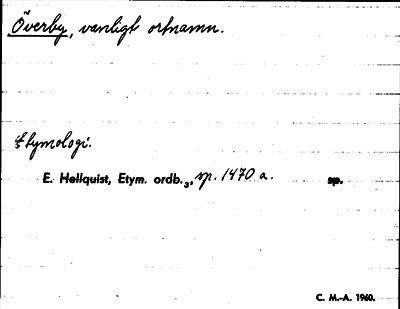 Överby, vanligt ortnamn.
Etymologi.
E. Hellquist, Etym. ordb.3, sp. 1470 a. sp.
C. M.-A. 1960.